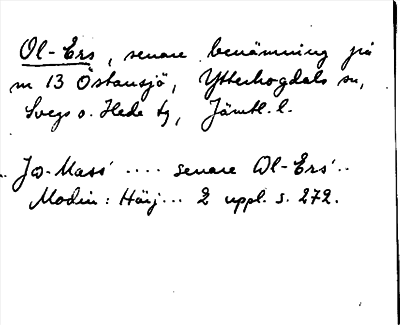 Ol-Ers, senare benämning på
nr 13 Östansjö, Ytterhogdals sn,
Svegs o. Hede tg, Jämtl. l.
.. Jo-Mass' .... senare Ol-Ers'..
Modin: Härj... 2 uppl. s. 272.